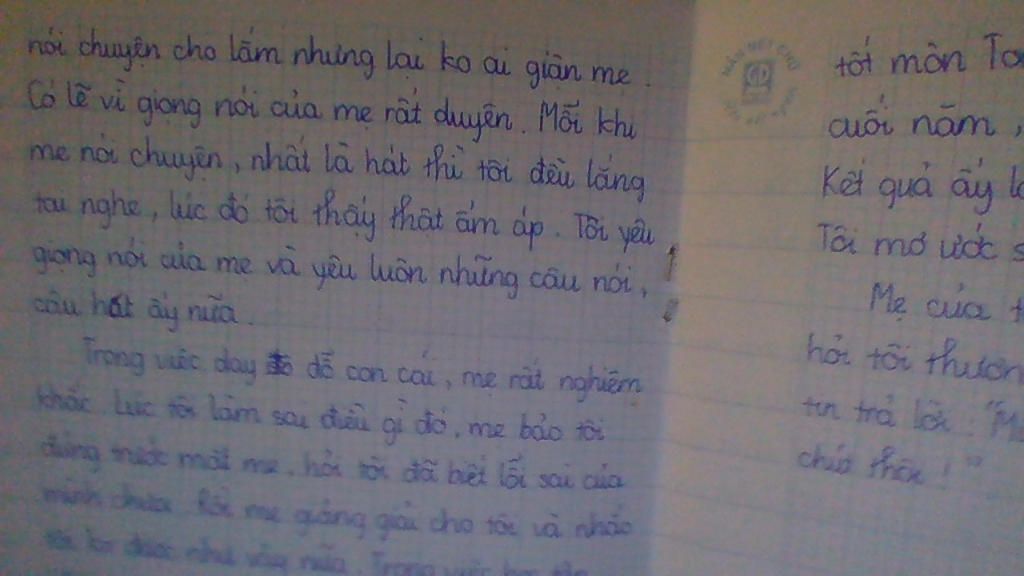 nói chuyện cho lắm nhưng lại ko ai giận mẹ.
Có lẽ vì giọng nói của mẹ rất duyên. Mỗi khi
mẹ nói chuyện, nhất là hát thì tôi đều lắng
tai nghe, lúc đó tôi thấy thật ấm áp. Tôi yêu
giọng nói của mẹ và yêu luôn những câu nói,
câu hát ấy nữa.
Trong việc dạy dỗ con cái, mẹ rất nghiêm
khắc. Lúc tôi làm sai điều gì đó, mẹ bảo tôi
đứng trước mặt mẹ, hỏi tôi đã biết lỗi sai của
mình chưa. Rồi mẹ giảng giải cho tôi và nhắc
tôi ko được như vậy nữa. Trong việc học
tốt môn
cuối năm,
Kết quả ấy
Tôi mơ ước
Mẹ của
hỏi tôi
tin trả lời: "
chứ thôi!"